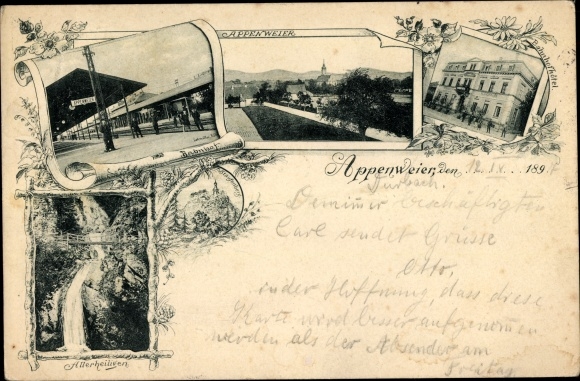 APPENWEIER
Bahnhof
Bahnhôtel
Appenweier, den 189
Durbach.
Dem immer beschäftigten
Carl sendet Grüsse
Otto,
in der Hoffnung, dass diese
Karte wird besser aufgenommen
werden als der Absender am
Freitag
Allerheiligen